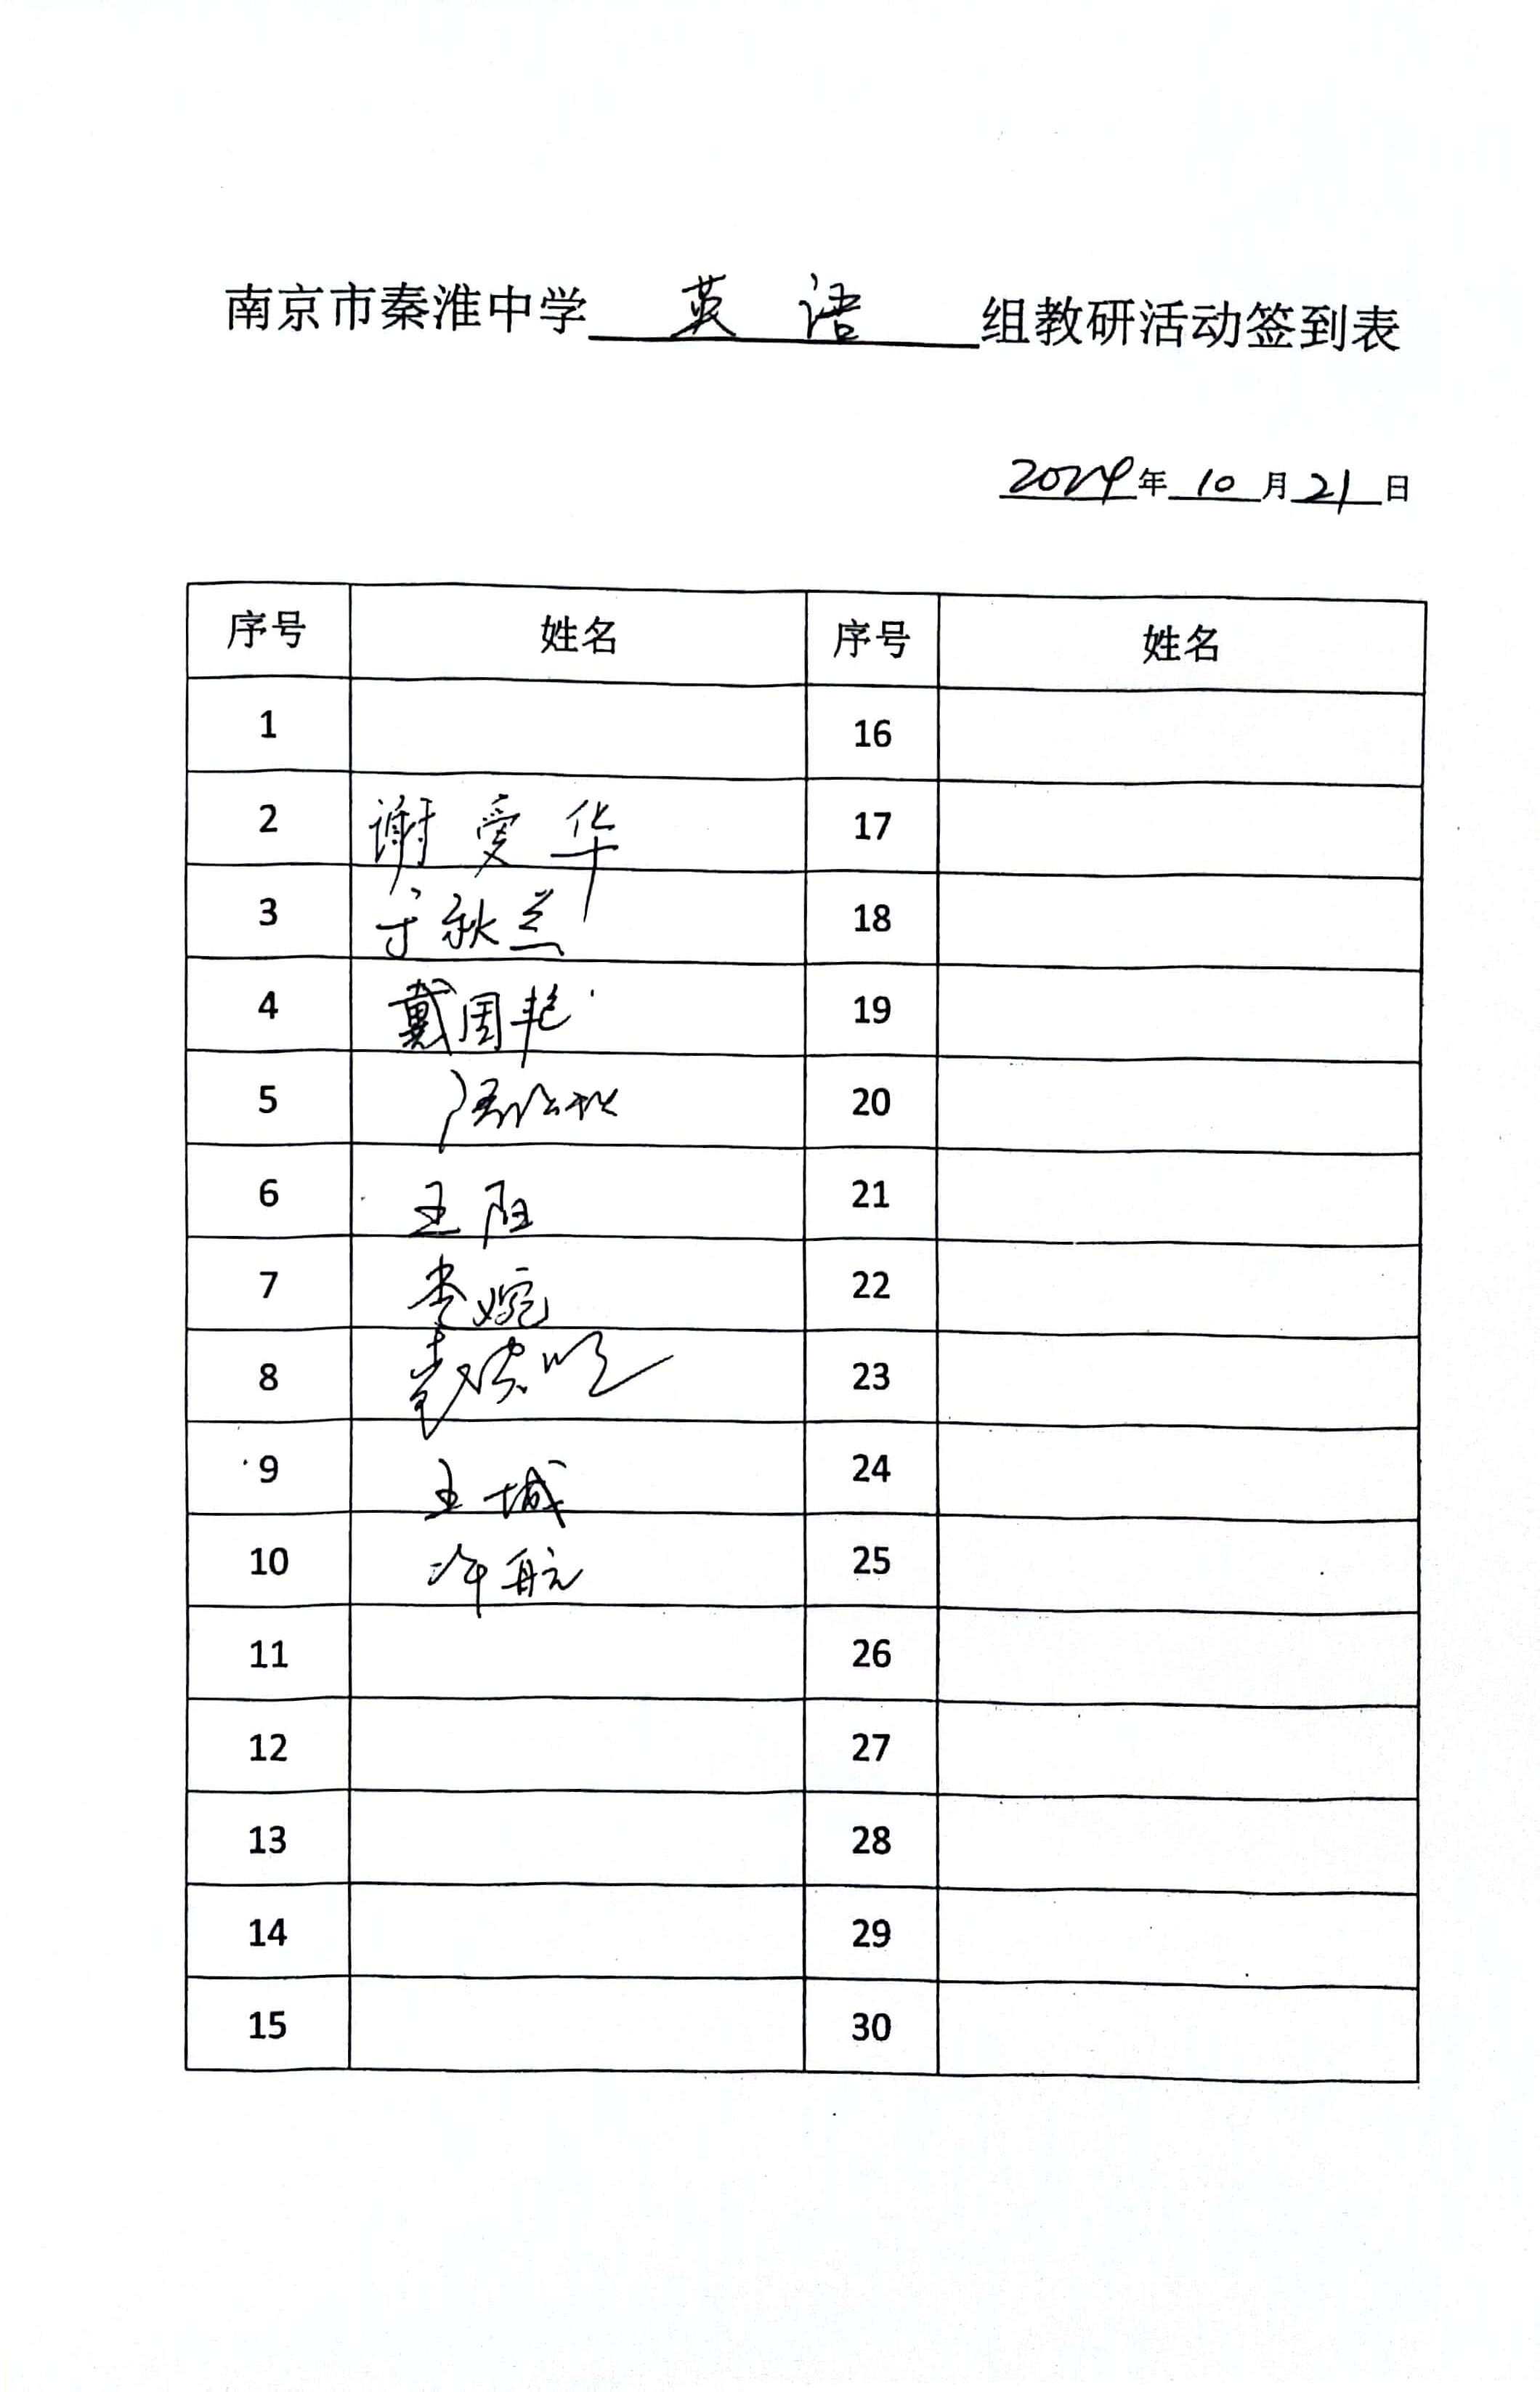 南京市秦淮中学 英语 组教研活动签到表
2024年10月21日
序号 姓名 序号 姓名
1 16
2 谢爱华 17
3 于秋兰 18
4 戴国艳 19
5 20
6 王阳 21
7 李婉 22
8 23
9 王城 24
10 许航 25
11 26
12 27
13 28
14 29
15 30